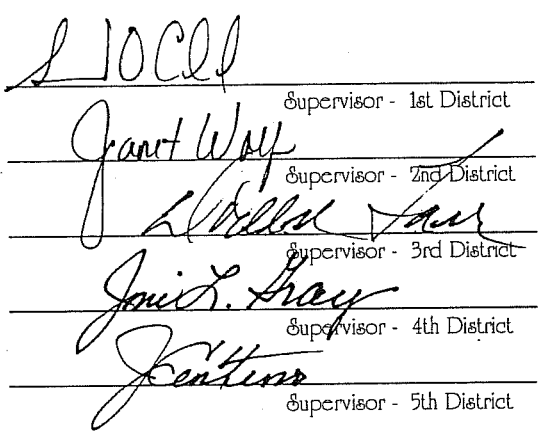 Supervisor - 1st District
Janet Wolf
Supervisor - 2nd District
Supervisor - 3rd District
Joni L. Gray
Supervisor - 4th District
J Centeno
Supervisor - 5th District